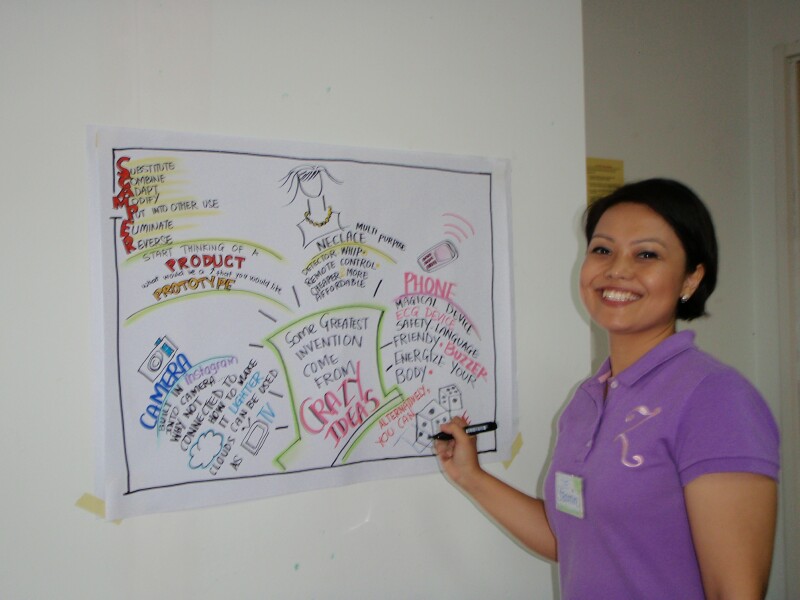 SUBSTITUTE
COMBINE
ADAPT
MODIFY
PUT INTO OTHER USE
ELIMINATE
REVERSE
START THINKING OF A
PRODUCT
what would be a
PROTOTYPE
what you would like
NECLACE MULTI PURPOSE
DETECTOR WHIP.
REMOTE CONTROL.
CHEAPER. MORE
AFFORDABLE
PHONE
MAGICAL DEVICE
ECG DEVICE
SAFETY LANGUAGE
FRIENDLY. BUZZER
ENERGIZE YOUR
BODY.
CAMERA
BUILT IN Instagram
INTO CAMERA
WHY NOT
CONNECTED TO
HOW TO MAKE
IT LIGHTER
CLOUDS CAN BE USED
AS TV
Some GREATEST
INVENTION
COME
FROM
CRAZY
IDEAS
ALTERNATIVELY,
YOU CAN